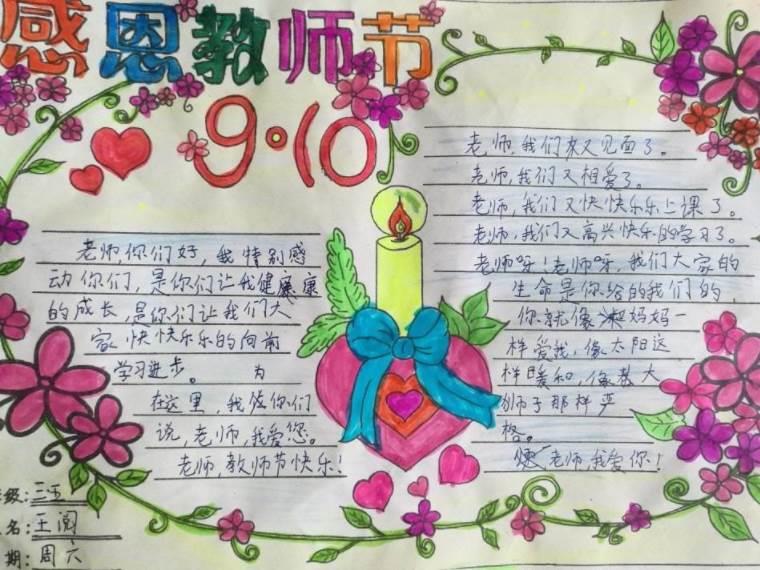 感恩教师节
9·10
老师,你们好,我特别感
动你们,是你们让我健康康
的成长,是你们让我们大
家快快乐乐的向前
学习进步。 为
在这里,我给你们
说,老师,我爱您。
老师,教师节快乐!
老师,我们来又见面了。
老师,我们又相爱了。
老师,我们又快快乐乐上课了。
老师,我们又高兴快乐的学习了。
老师呀!老师呀,我们大家的
生命是你给的我们的,
你就像妈妈一
样爱我,像太阳这
样暖和,像教大
师子那样严
格。
老师,我爱你!
级:三五
名:王阅
期:周六